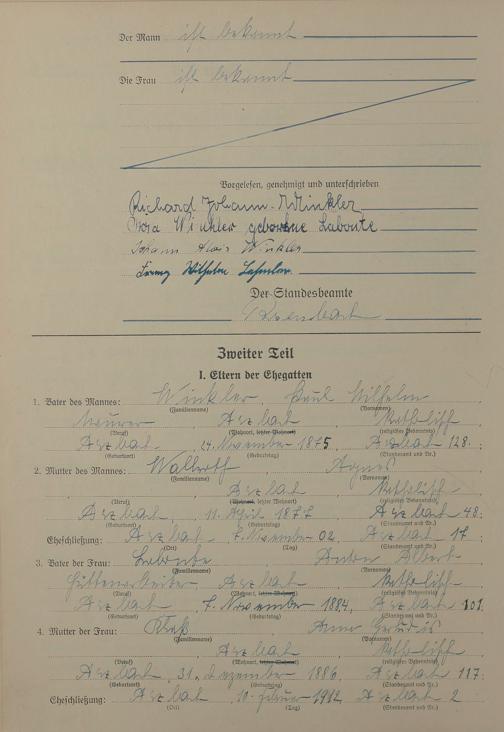 Der Mann ist bekannt
Die Frau ist bekannt
Vorgelesen, genehmigt und unterschrieben
Richard Johann Winkler
Winkler geborene Laboute
Johann Alois Winkler
Wilhelm
Der Standesbeamte
Zweiter Teil
I. Eltern der Ehegatten
1. Vater des Mannes: Winkler, Paul Wilhelm
(Familienname) (Vornamen)
Maurer Asbach katholisch
(Beruf) (Wohnort, letzter Wohnort) (religiöses Bekenntnis)
Asbach 24. November 1875 Asbach 128
(Geburtsort) (Geburtstag) (Standesamt und Nr.)
2. Mutter des Mannes: Agnes
(Familienname) (Vornamen)
Asbach katholisch
(Beruf) (Wohnort, letzter Wohnort) (religiöses Bekenntnis)
Asbach 11. April 1877 Asbach 48
(Geburtsort) (Geburtstag) (Standesamt und Nr.)
Eheschließung: Asbach 7. November 02 Asbach 17
(Ort) (Tag) (Standesamt und Nr.)
3. Vater der Frau: Laboute Albert
(Familienname) (Vornamen)
Hüttenarbeiter Asbach katholisch
(Beruf) (Wohnort, letzter Wohnort) (religiöses Bekenntnis)
Asbach 7. November 1884 Asbach 101
(Geburtsort) (Geburtstag) (Standesamt und Nr.)
4. Mutter der Frau: Anna Gertrud
(Familienname) (Vornamen)
Asbach katholisch
(Beruf) (Wohnort, letzter Wohnort) (religiöses Bekenntnis)
Asbach 31. Dezember 1886 Asbach 117
(Geburtsort) (Geburtstag) (Standesamt und Nr.)
Eheschließung: Asbach 10. 1912 Asbach 2
(Ort) (Tag) (Standesamt und Nr.)